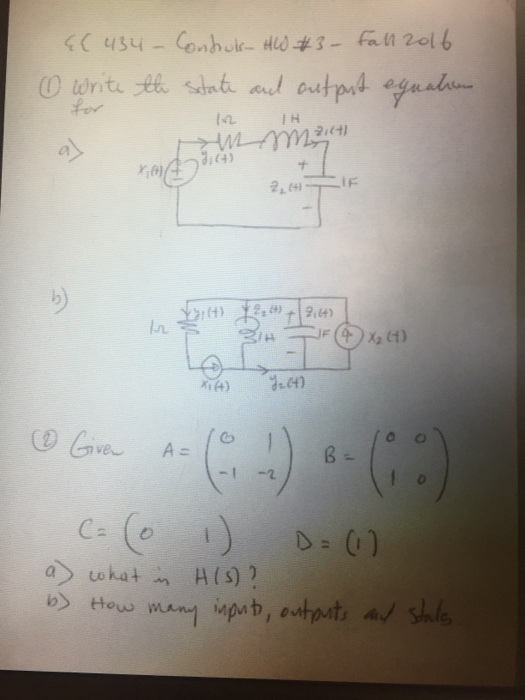 EC 434 - Controls - HW #3 - Fall 2016
① Write the state and output equations
for
a)
1Ω 1H z₁(t)
x₁(t) y₁(t)
+
z₂(t) 1F
-
b)
y₁(t) z₂(t) + z₁(t)
1Ω 1H 1F x₂(t)
-
x₁(t) y₂(t)
② Given A = ( 0 1 B = ( 0 0
-1 -2 ) 1 0 )
C = ( 0 1 ) D = (1)
a) what is H(s)?
b) How many inputs, outputs and states